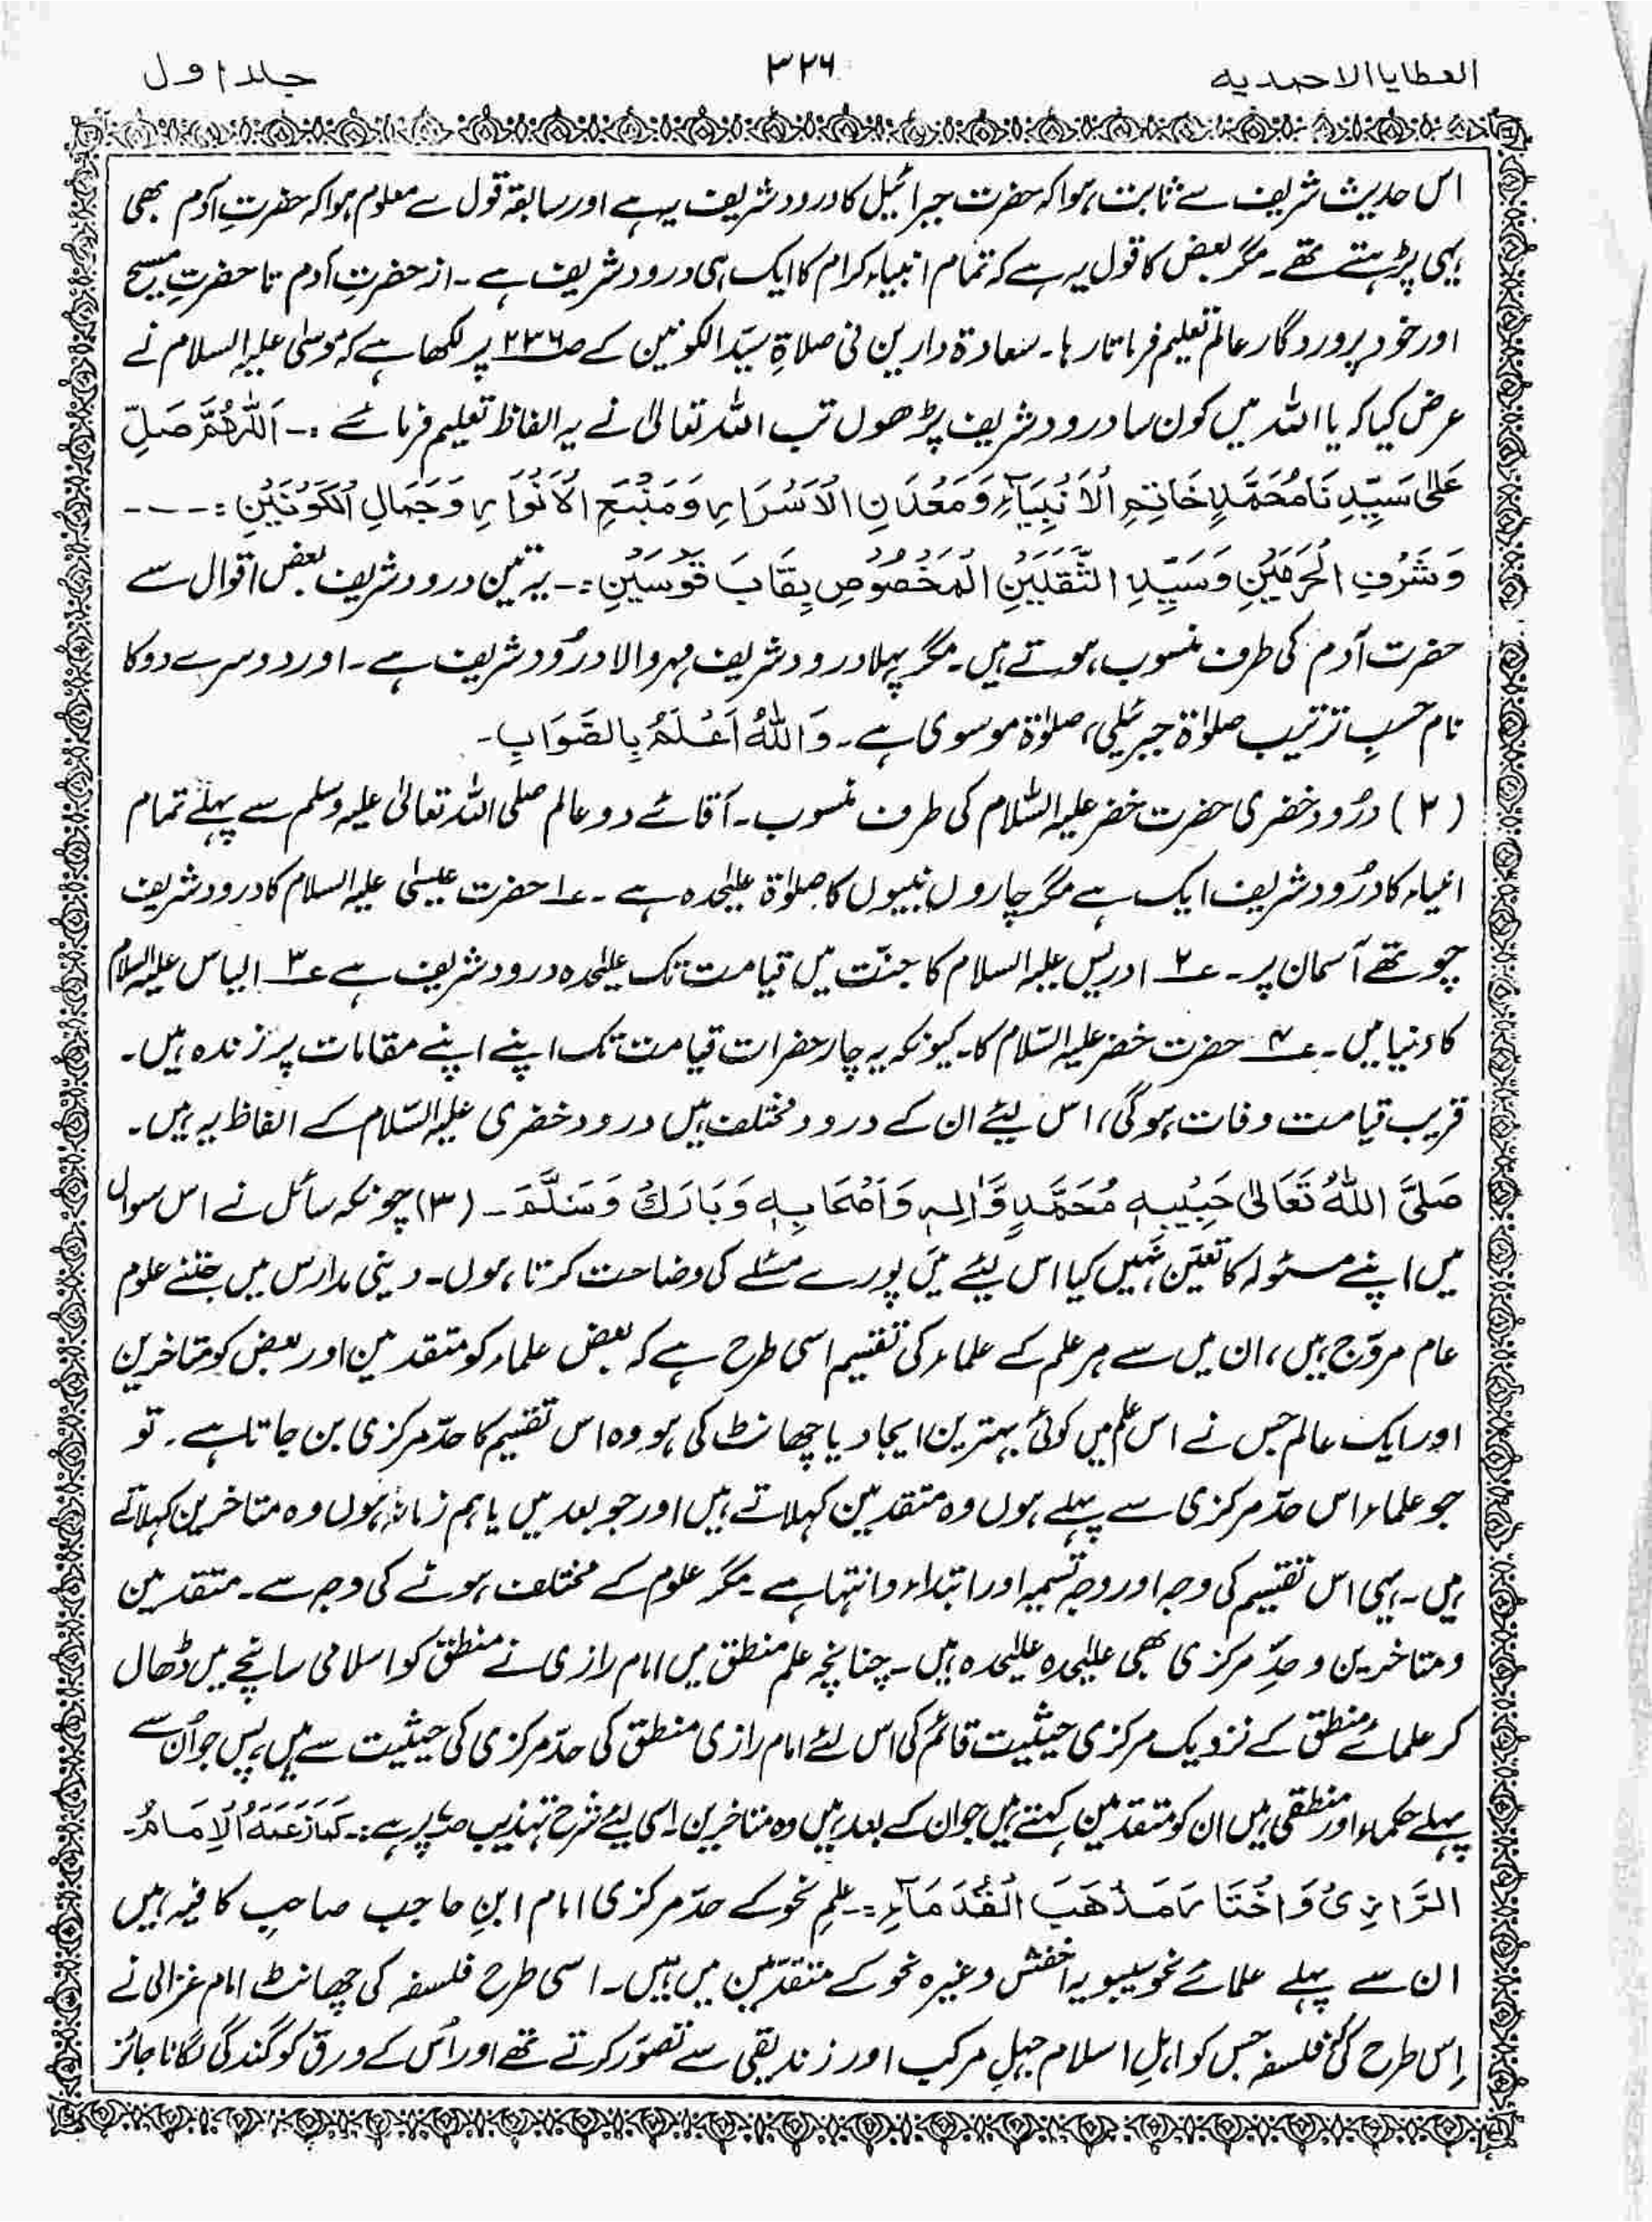 العطایا الاحمدیہ ۳۲۶ جلد اول
اس حدیث شریف سے ثابت ہوا کہ حضرت جبرائیل کا درود شریف یہ ہے اور سابقہ قول سے معلوم ہوا کہ حضرتِ آدم بھی
یہی پڑہتے تھے۔ مگر بعض کا قول یہ ہے کہ تمام انبیاء کرام کا ایک ہی درود شریف ہے۔ از حضرتِ آدم تا حضرتِ مسیح
اور خود پروردگار عالم تعلیم فرماتا رہا۔ سعادۃ دارین فی صلاۃِ سیّد الکونین کے صـ۲۳۶ پر لکھا ہے کہ موسٰی علیہ السلام نے
عرض کیا کہ یا اللہ میں کون سا درود شریف پڑھوں تب اللہ تعالیٰ نے یہ الفاظ تعلیم فرمائے :۔ اَللّٰھُمَّ صَلِّ
عَلٰی سَیِّدِنَا مُحَمَّدٍ خَاتِمِ الْاَنْبِیَآءِ وَمَعْدَنِ الْاَسْرَارِ وَمَنْبَعِ الْاَنْوَارِ وَجَمَالِ الْکَوْنَیْنِ :۔۔۔۔
وَشَرْفِ الْحَرَمَیْنِ وَسَیِّدِ الثَّقَلَیْنِ الْمَخْصُوْصِ بِقَابَ قَوْسَیْنِ :۔ یہ تین درود شریف بعض اقوال سے
حضرت آدم کی طرف منسوب ہوتے ہیں۔ مگر پہلا درود شریف مہر والا درُود شریف ہے۔ اور دوسرے دو کا
نام حسبِ ترتیب صلوٰۃ جبرئیلی، صلوٰۃ موسوی ہے۔ وَاللّٰہُ اَعْلَمُ بِالصَّوَابِ۔
(۲) درُود خضری حضرت خضر علیہ السّلام کی طرف منسوب۔ آقائے دو عالم صلی اللہ تعالیٰ علیہ وسلم سے پہلے تمام
انبیاء کا درُود شریف ایک ہے مگر چاروں نبیوں کا صلوٰۃ علیٰحدہ ہے۔ ع۱ حضرت عیسٰی علیہ السلام کا درود شریف
چوتھے آسمان پر۔ ع۲ ادریس علیہ السلام کا جنّت میں قیامت تک علیٰحدہ درود شریف ہے ع۳ الیاس علیہ السلام
کا دنیا میں۔ ع۴ حضرت خضر علیہ السّلام کا۔ کیونکہ یہ چار حضرات قیامت تک اپنے اپنے مقامات پر زندہ ہیں۔
قریب قیامت وفات ہوگی، اس لیئے ان کے درود مختلف ہیں درود خضری علیہ السّلام کے الفاظ یہ ہیں۔
صَلَّی اللّٰہُ تَعَالٰی حَبِیْبِہٖ مُحَمَّدٍ وَّاٰلِہٖ وَاَصْحَابِہٖ وَبَارَكَ وَسَلَّمَ۔ (۳) چونکہ سائل نے اس سوال
میں اپنے مسئولہ کا تعیّن نہیں کیا اس لیئے میں پورے مسئلے کی وضاحت کرتا ہوں۔ دینی مدارس میں جتنے علوم
عام مروّج ہیں، ان میں سے ہر علم کے علماء کی تقسیم اسی طرح ہے کہ بعض علماء کو متقدمین اور بعض کو متاخرین
اور ایک عالم جس نے اس علم میں کوئی بہترین ایجاد یا چھانٹ کی ہو وہ اس تقسیم کا حدّ مرکزی بن جاتا ہے۔ تو
جو علماء اس حدّ مرکزی سے پہلے ہوں وہ متقدمین کہلاتے ہیں اور جو بعد میں یا ہم زمانہ ہوں وہ متاخرین کہلاتے
ہیں۔ یہی اس تقسیم کی وجہ اور وجہ تسمیہ اور ابتداء وانتہا ہے۔ مگر علوم کے مختلف ہونے کی وجہ سے۔ متقدمین
ومتاخرین وحدِّ مرکزی بھی علیٰحدہ علیٰحدہ ہیں۔ چنانچہ علم منطق میں امام رازی نے منطق کو اسلامی سانچے میں ڈھال
کر علمائے منطق کے نزدیک مرکزی حیثیت قائم کی اس لئے امام رازی منطق کی حدّ مرکزی کی حیثیت سے ہیں پس جو اُن سے
پہلے حکماء اور منطقی ہیں ان کو متقدمین کہتے ہیں جو ان کے بعد ہیں وہ متاخرین۔ اسی لیئے شرح تہذیب پر ہے :۔ کَمَا زَعَمَہُ الْاِمَامُ۔
الرَّازِیُّ وَاخْتَارَ مَذْھَبَ الْقُدَمَآءِ :۔ علمِ نحو کے حدّ مرکزی امام ابنِ حاجب صاحبِ کافیہ ہیں
ان سے پہلے علمائے نحو سیبویہ اخفش وغیرہ نحو کے متقدّمین میں ہیں۔ اسی طرح فلسفہ کی چھانٹ امام غزالی نے
اِس طرح کی کہ فلسفہ جس کو اہلِ اسلام جہلِ مرکب اور زندیقی سے تصوّر کرتے تھے اور اُس کے ورق کو گندگی لگانا جائز